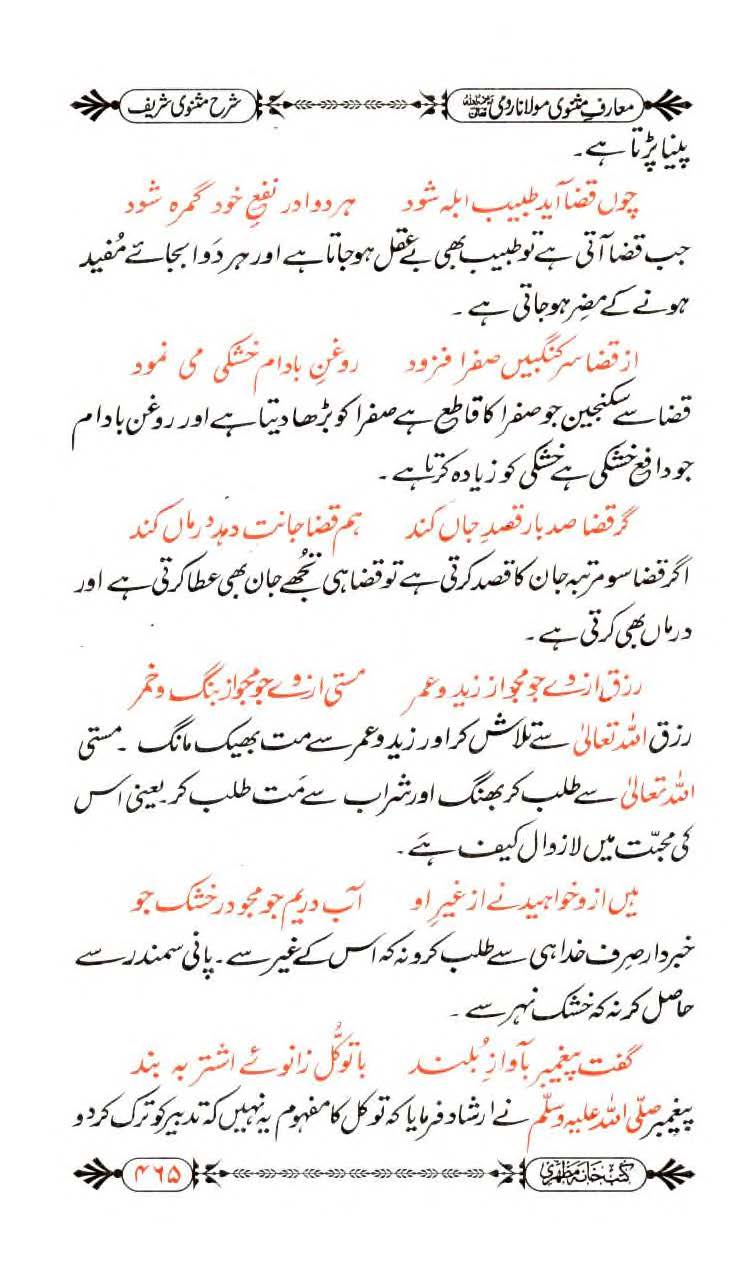 معارفِ مثنوی مولانا رومی رحمۃ اللہ تعالیٰ علیہ شرح مثنوی شریف
پلینا پڑتا ہے۔
چوں قضا آید طبیب ابلہ شود ہر دوا در نفعِ خود گمرہ شود
جب قضا آتی ہے تو طبیب بھی بے عقل ہوجاتا ہے اور ہر دَوا بجائے مُفید
ہونے کے مضر ہوجاتی ہے۔
از قضا سرکنگبیں صفرا فزود روغنِ بادام خشکی می نمود
قضا سے سکنجبین جو صفرا کا قاطع ہے صفرا کو بڑھا دیتا ہے اور روغن بادام
جو دافع خشکی ہے خشکی کو زیادہ کرتا ہے۔
گر قضا صد بار قصدِ جاں کند ہم قضا جانت دہد درماں کند
اگر قضا سو مرتبہ جان کا قصد کرتی ہے تو قضا ہی تجُھے جان بھی عطا کرتی ہے اور
درماں بھی کرتی ہے۔
رزق از وے جو مجو از زید و عمر مستی از وے جو مجو از بنگ و خمر
رزق اللہ تعالیٰ سے تلاش کر اور زید و عمر سے مت بھیک مانگ۔ مستی
اللہ تعالیٰ سے طلب کر بھنگ اور شراب سے مَت طلب کر۔ یعنی اس
کی محبّت میں لازوال کیف ہَے۔
ہیں ازو خواہید نے از غیرِ او آب در یم جو مجو در خشک جو
خبردار صِرف خدا ہی سے طلب کرو نہ کہ اس کے غیر سے۔ پانی سمندر سے
حاصل کر نہ کہ خشک نہر سے۔
گفت پیغمبر بآوازِ بُلند با توکُّل زانوئے اشتر بہ بند
پیغمبر صلّی اللہ علیہ وسلّم نے ارشاد فرمایا کہ توکل کا مفہوم یہ نہیں کہ تدبیر کو ترک کردو
کتب خانہ مظہری ۴۶۵